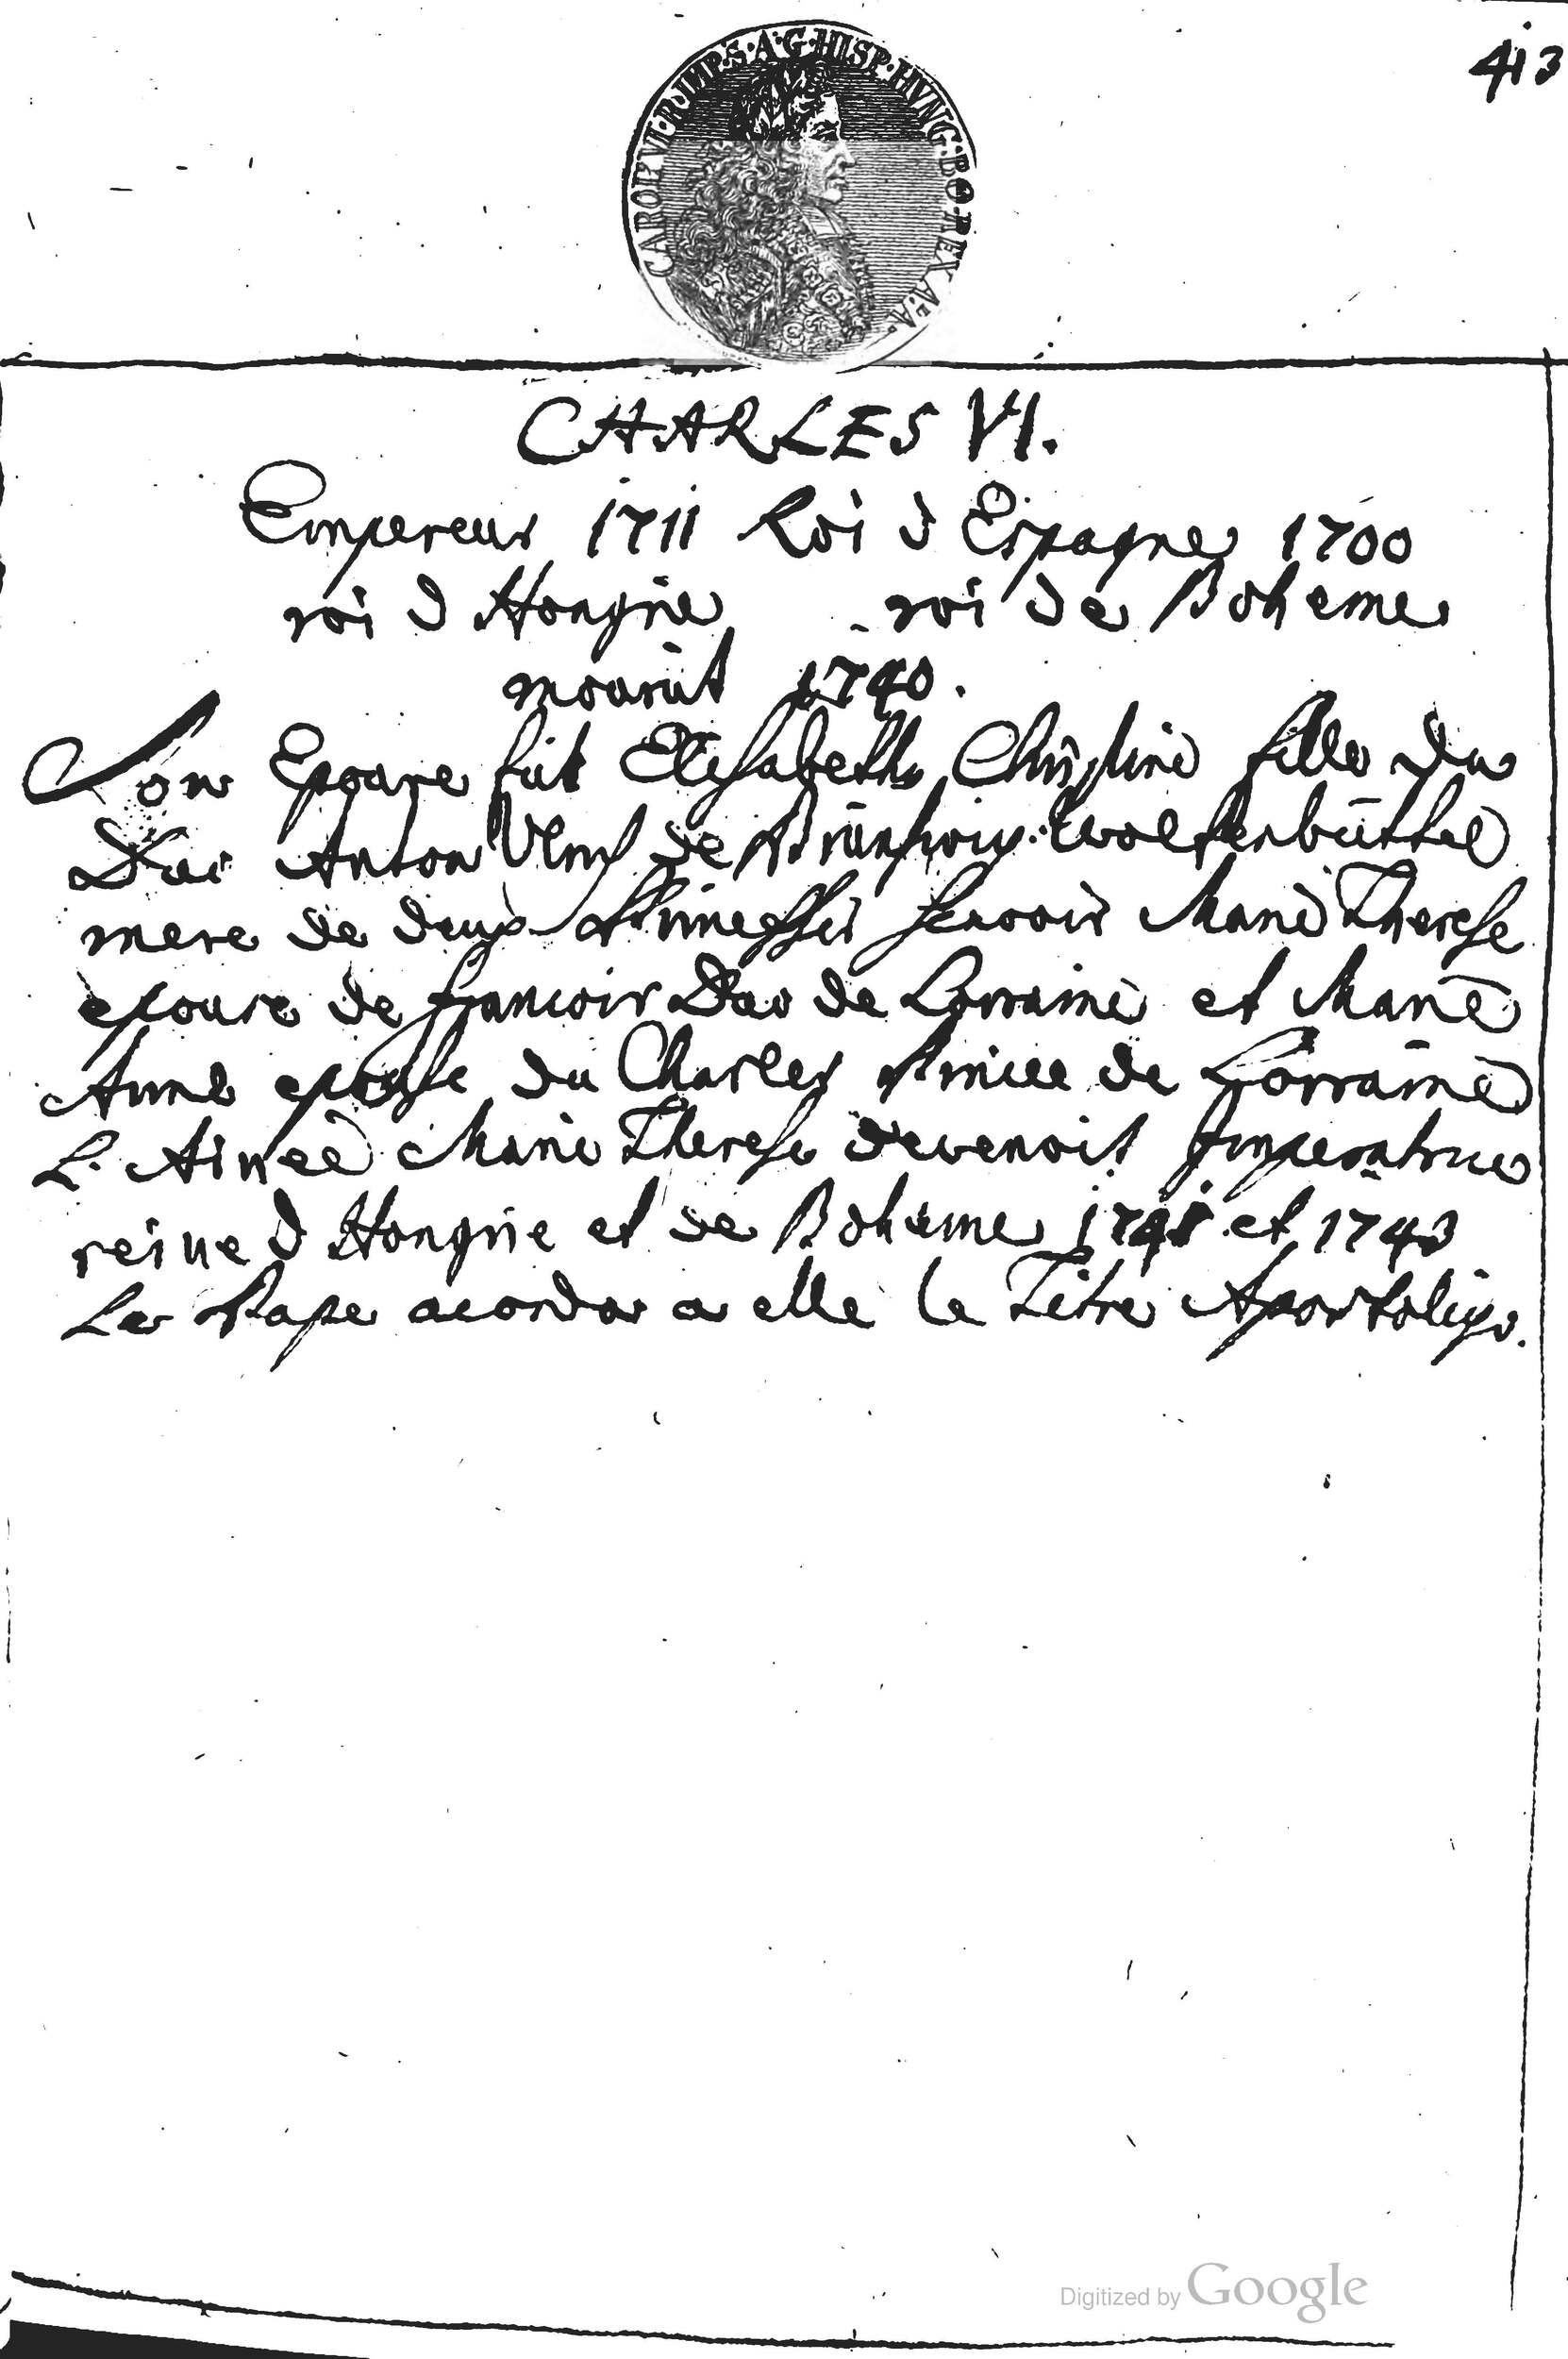 413
CAROL·VI·R·IMP·S·A·G·HISP·HVNG·BO·REX·A·A·
CHARLES VI.
Empereur 1711 Roi d Espagne 1700
roi d Hongrie roi de Boheme
mourut 1740.
Son Epouse fut Elisabeth Christine fille du
Duc Anton Ulric de Brunswig-Wolfenbüttel
mere de deux Prinesses scavoir Marie Therese
epouse de Francois Duc de Lorraine et Marie
Anne epouse du Charles Prince de Lorraine
L. Ainee Marie Therese devenoit Imperatrice
reine d Hongrie et de Boheme 1741 et 1743
Le Pape acorda a elle le Titre Apostoliqe.
Digitized by Google